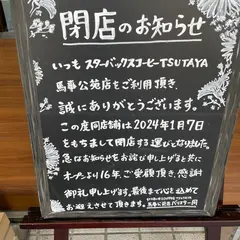 閉店のお知らせ
いつも スターバックスコーヒーTSUTAYA
馬事公苑店をご利用頂き、
誠にありがとうございます。
この度同店舗は2024年1月7日
をもちまして閉店する運びとなりました。
急なお知らせをお詫び申し上げると共に
オープンより16年、ご愛顧頂き、感謝
御礼申し上げます。最後まで心を込めて
お迎えさせて頂きます。
馬事公苑店 パートナー一同